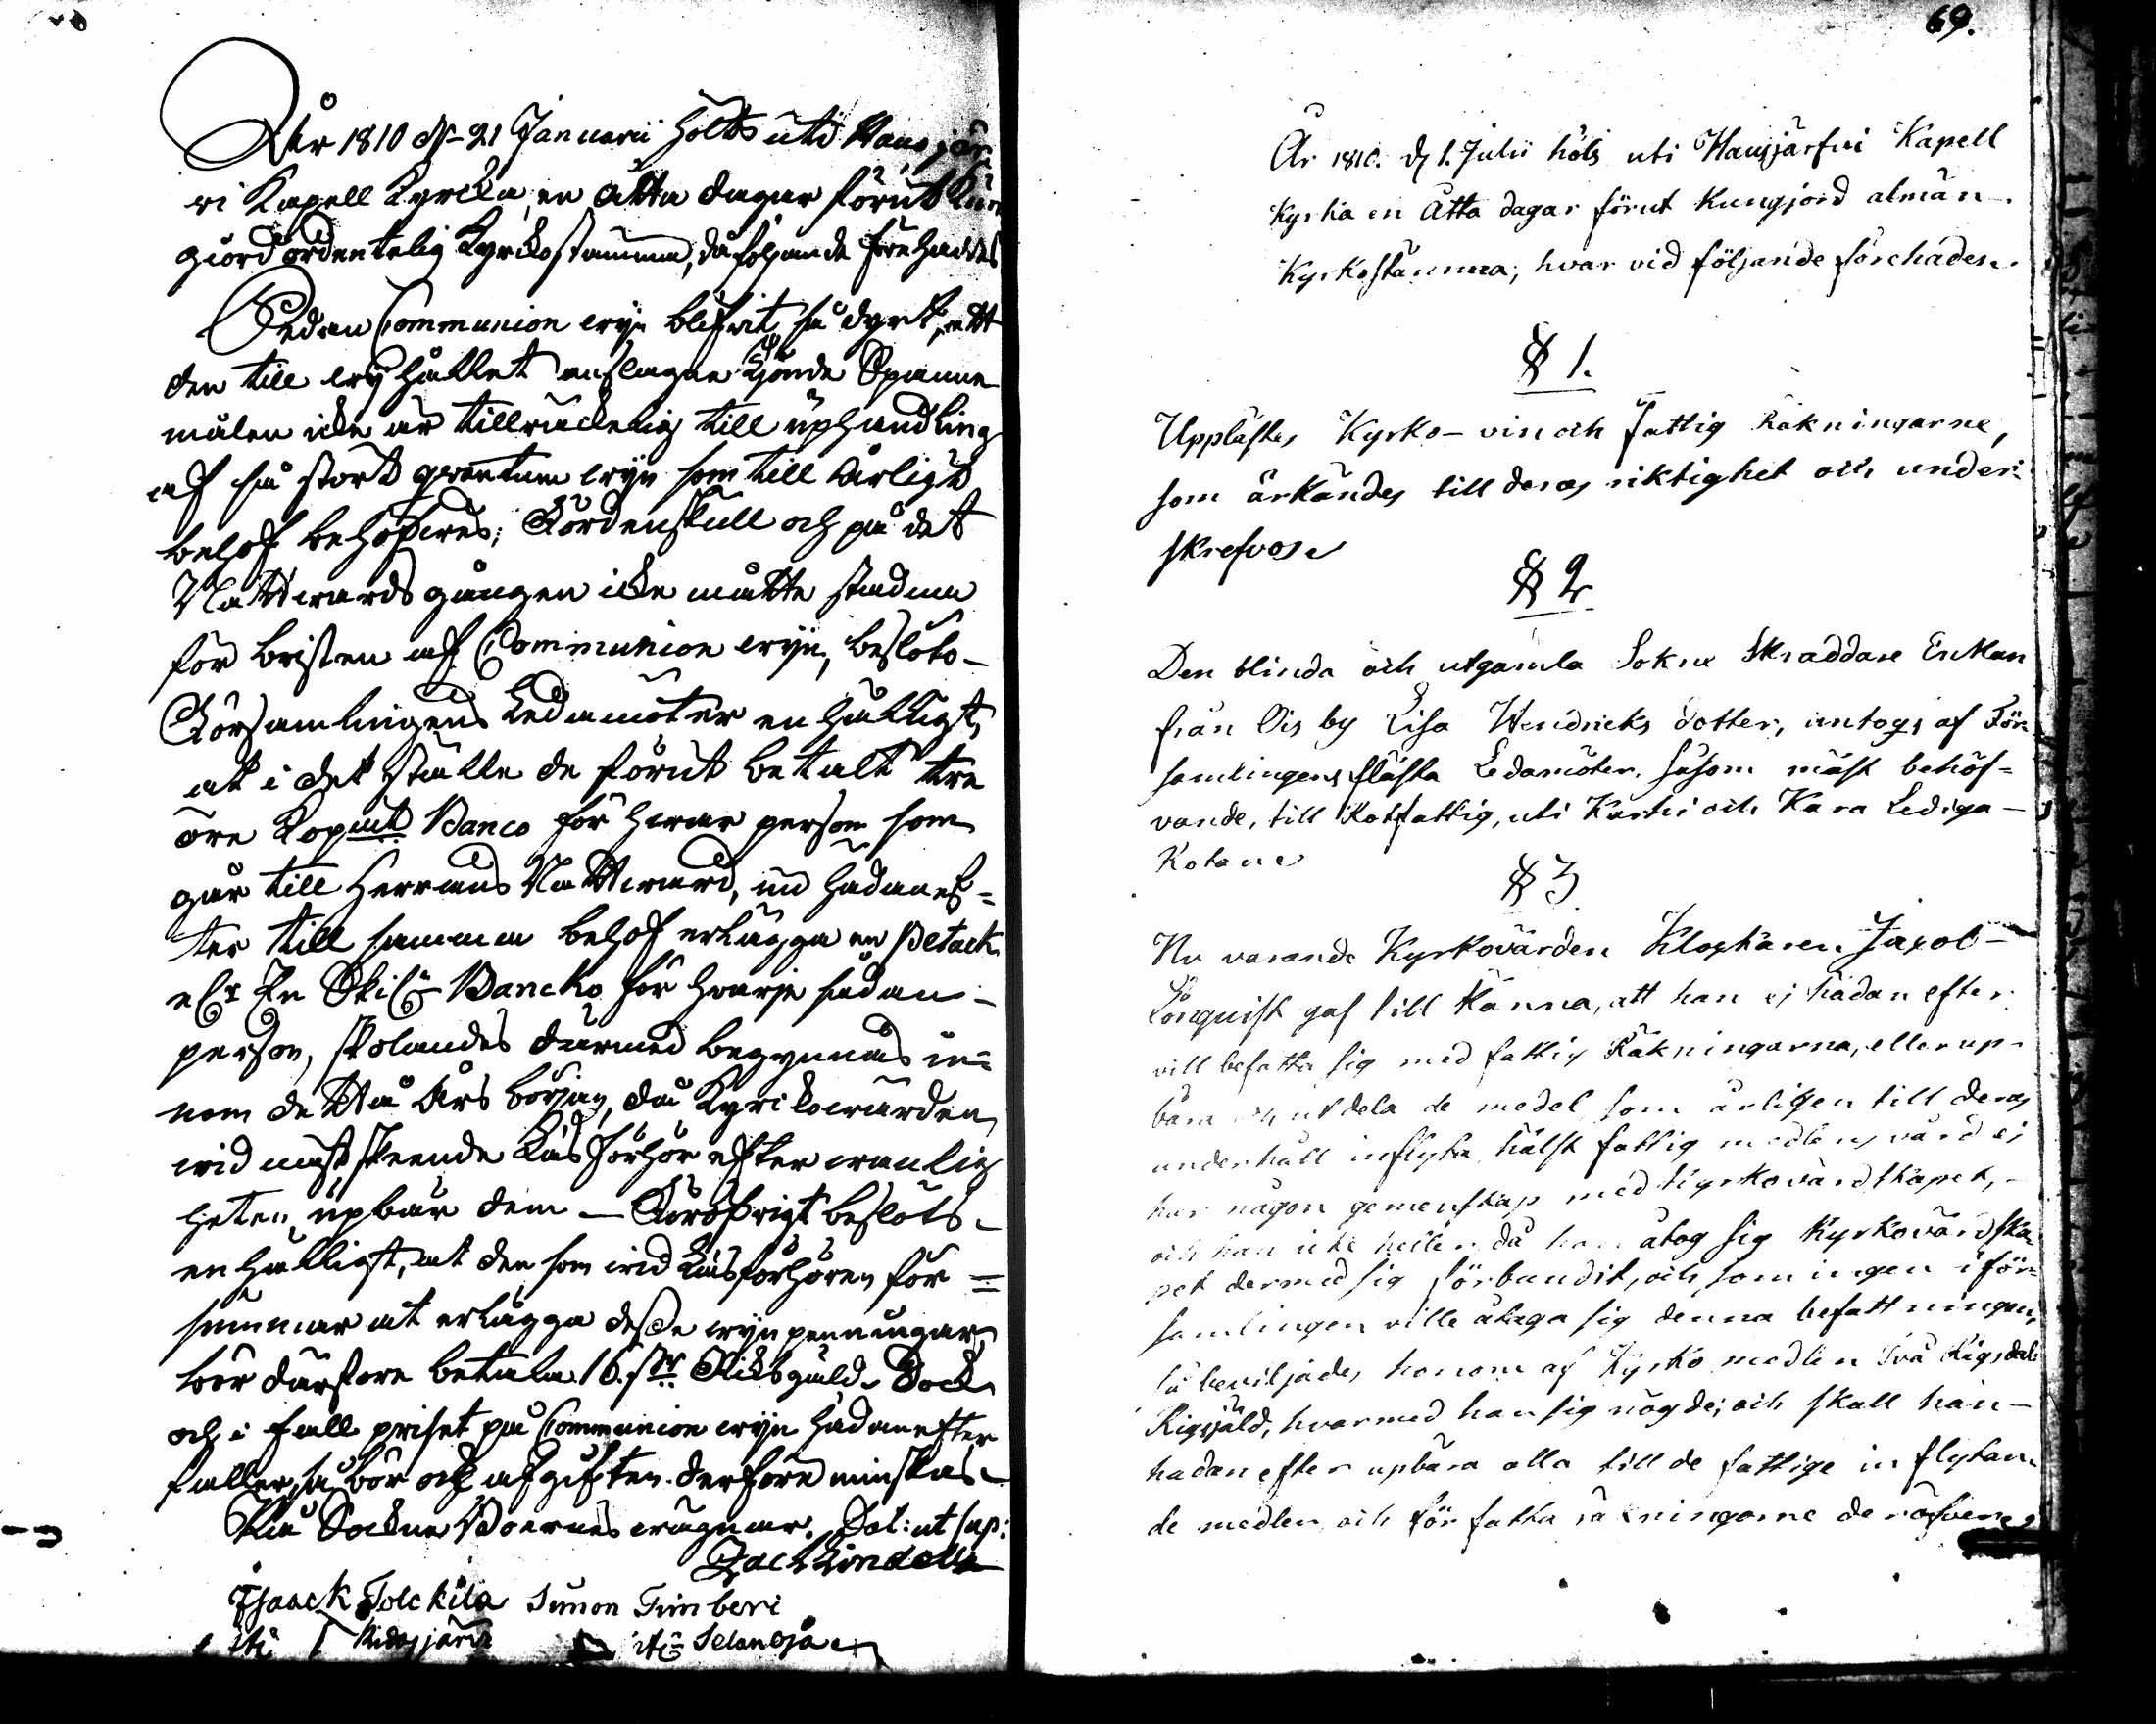 År 1810 d. 21 Januarii höltz uti Hausjär
vi Kapell Kyrcka, en åtta dagar förut kun
giord ordentelig Kyrckostämma, då följande förehades
Sedan Communion wijn blifvit så dyrt, att
den till wij hållet anslagne Tjonde Spanne
målen icke är tillräckelig till uphandling
af så stort qvantum wijn som till årligt
behof behöfves; Fördenskull och på det
Nattwards gången icke måtte stadna
för bristen af Communion wijn, beslöto
Församlingens Ledamöter enhälligt,
at i det ställe de förut betalt tre
öre Kopmt Banco för hwar person som
går till Herrans Nattward, nu hädanef=
ter till samma behof erlägga en Petack
elr En Skil: Bancko för hvarje sådan
person, skolandes därmed begynnas in=
nom detta Års början, då Kyrckowärden
wid näst skeende Läsförhör efter wanlig
heten, upbär dem — Föröfrigt beslöts
enhälligt, at den som wid Läsförhören för=
summar at erlägga desse wijnpenningar
bör därföre betala 16 sr Riksgäld. Dock
och i fall priset på Communion wijn hädanefter
faller, så bör ock afgiften derföre minskas
På Sockne Boernes wägnar. Dat: ut sup:
Zach Lindell
Isaack Tolckila Simon Timberi
uti Ridasjärvi uti Selanoja
69.
År 1810. d 1. Julii höls uti Hausjärfvi Kapell
Kyrka en Åtta dagar förut Kungjord alman
Kyrkostämma; hvar vid följande förehades.
§ 1.
Upplästes Kyrko- vin och fattig Räkningarne,
som ärkändes till deras riktighet och under=
skrefvos
§ 2
Den blinda och utgamla Sokne Skraddare Enkan
från Ois by Lisa Hendricks dotter, intogs af För
samlingens flästa Ledamöter, såsom mäst behöf=
vande, till Rotfattig, uti Karhi och Kara Lediga
Rotarne
§ 3
Nu varande Kyrkovärden Klockaren Jacob
Lönquist gaf till känna, att han ej hädan efter
vill befatta sig med fattig Räkningarna, eller up
bära och utdela de medel, som årligen till deras
underhåll inflyta, hälst fattig medlens vård ej
har någon gemenskap med Kyrkovärdskapet,
och han icke heller då han åtog sig Kyrkovärdska
pet dermed sig förbundit, och som ingen i för=
samlingen ville åtaga sig denna befattningen,
så beviljades honom af Kyrko medlen Två Rigsdal
Rigsjäld, hvarmed han sig nögde; och skall han
hadan efter upbära alla till de fattige in flytan
de medlen och för fatta räkningarne deröfver